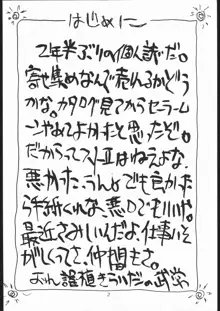 はじめに
2年半ぶりの個人誌だ。
寄せ集めなんで売れるかどう
かな。カタログ見てからセーラーム
ーンやめとよかったと思ったぞ。
だからってストIIはねえよな。
悪かった、うん。でも良かった
ら手紙くれな、悪口でもいいや。
最近さみしいんだよ、仕事いそ
がしくってさ、仲間もさ。